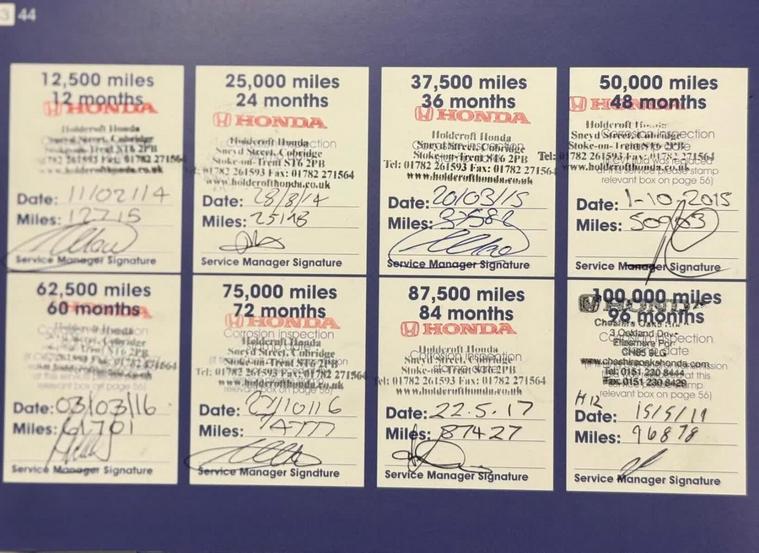 44
12,500 miles
12 months
HONDA
Holdcroft Honda
Sneyd Street, Cobridge
Stoke-on-Trent ST6 2PB
01782 261593 Fax: 01782 271564
www.holdcrofthonda.co.uk
Date: 11/02/14
Miles: 12715
Service Manager Signature
25,000 miles
24 months
HONDA
Holdcroft Honda
Sneyd Street, Cobridge
Stoke-on-Trent ST6 2PB
Tel: 01782 261593 Fax: 01782 271564
www.holdcrofthonda.co.uk
Date: 28/8/14
Miles:
Service Manager Signature
37,500 miles
36 months
HONDA
Holdcroft Honda
Sneyd Street, Cobridge
Stoke-on-Trent ST6 2PB
Tel: 01782 261593 Fax: 01782 271564
www.holdcrofthonda.co.uk
Date: 20/03/15
Miles:
Service Manager Signature
50,000 miles
48 months
HONDA
Holdcroft Honda
Sneyd Street, Cobridge
Stoke-on-Trent ST6 2PB
Tel: 01782 261593 Fax: 01782 271564
www.holdcrofthonda.co.uk
relevant box on page 56)
Date: 1-10-2015
Miles:
Service Manager Signature
62,500 miles
60 months
HONDA
Corrosion inspection
Holdcroft Honda
Sneyd Street, Cobridge
relevant box on page 56)
Date: 03/03/16
Miles: 61701
Service Manager Signature
75,000 miles
72 months
HONDA
Corrosion inspection
Holdcroft Honda
Sneyd Street, Cobridge
Stoke-on-Trent ST6 2PB
Tel: 01782 261593 Fax: 01782 271564
www.holdcrofthonda.co.uk
Date: /10/16
Miles:
Service Manager Signature
87,500 miles
84 months
HONDA
Holdcroft Honda
Sneyd Street, Cobridge
Stoke-on-Trent ST6 2PB
Tel: 01782 261593 Fax: 01782 271564
www.holdcrofthonda.co.uk
Date: 22.5.17
Miles: 87427
Service Manager Signature
100,000 miles
96 months
HONDA
Cheshire Oaks
3 Oakland Drive
Ellesmere Port
CH65 9LG
www.cheshireoakshonda.com
Tel: 0151 230 8444
Fax: 0151 230 8429
relevant box on page 56)
Date: 15/5/
Miles: 96878
Service Manager Signature